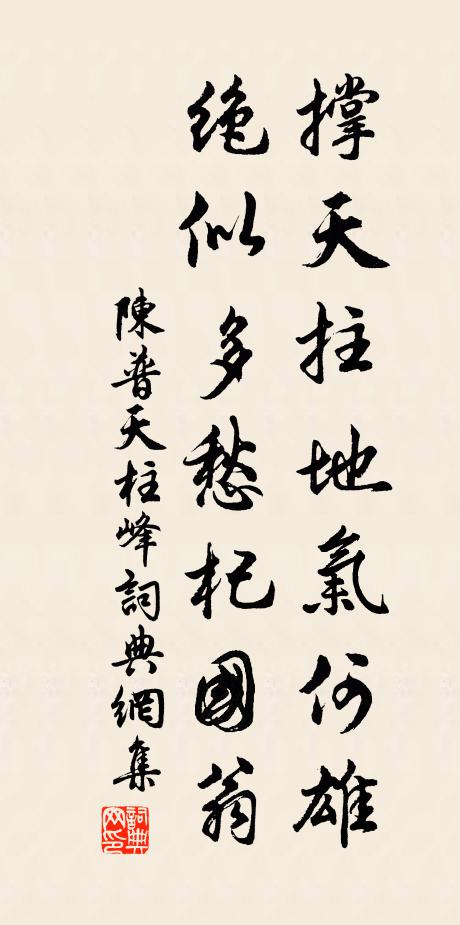 撐天拄地氣何雄
絶似多愁杞國翁
陳普天柱峰詞典網集
詞典網印